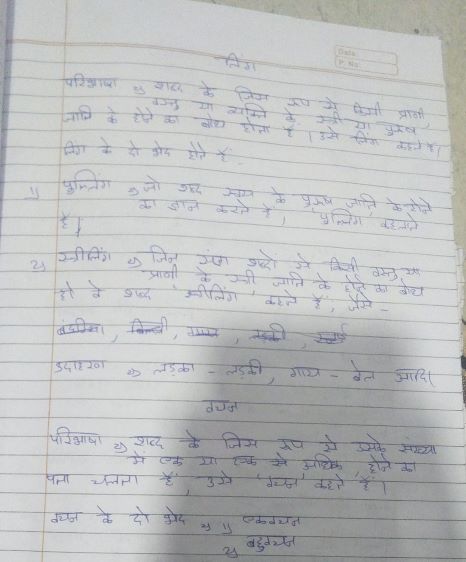 Date
P. No.
लिंग
परिभाषा => शब्द के जिस रूप से किसी प्राणी,
वस्तु या व्यक्ति के स्त्री या पुरुष
जाति के होने का बोध होता है। उसे लिंग कहते हैं।
लिंग के दो भेद होते हैं.
1) पुल्लिंग => जो शब्द के पुरुष जाति के होने
का ज्ञान कराते है, 'पुल्लिंग' कहलाते
है।
2) स्त्रीलिंग => जिन संज्ञा शब्दों से किसी वस्तु या
प्राणी के स्त्री जाति के होने का बोध
हो वे शब्द 'स्त्रीलिंग' कहते हैं, जैसे -
उदाहरण => लड़का - लड़की, गाय - बैल आदि।
वचन
परिभाषा => शब्द के जिस रूप से उसके संख्या
में एक या एक से अधिक होने का
पता चलता है, उसे 'वचन' कहते हैं।
वचन के दो भेद => 1) एकवचन
2) बहुवचन